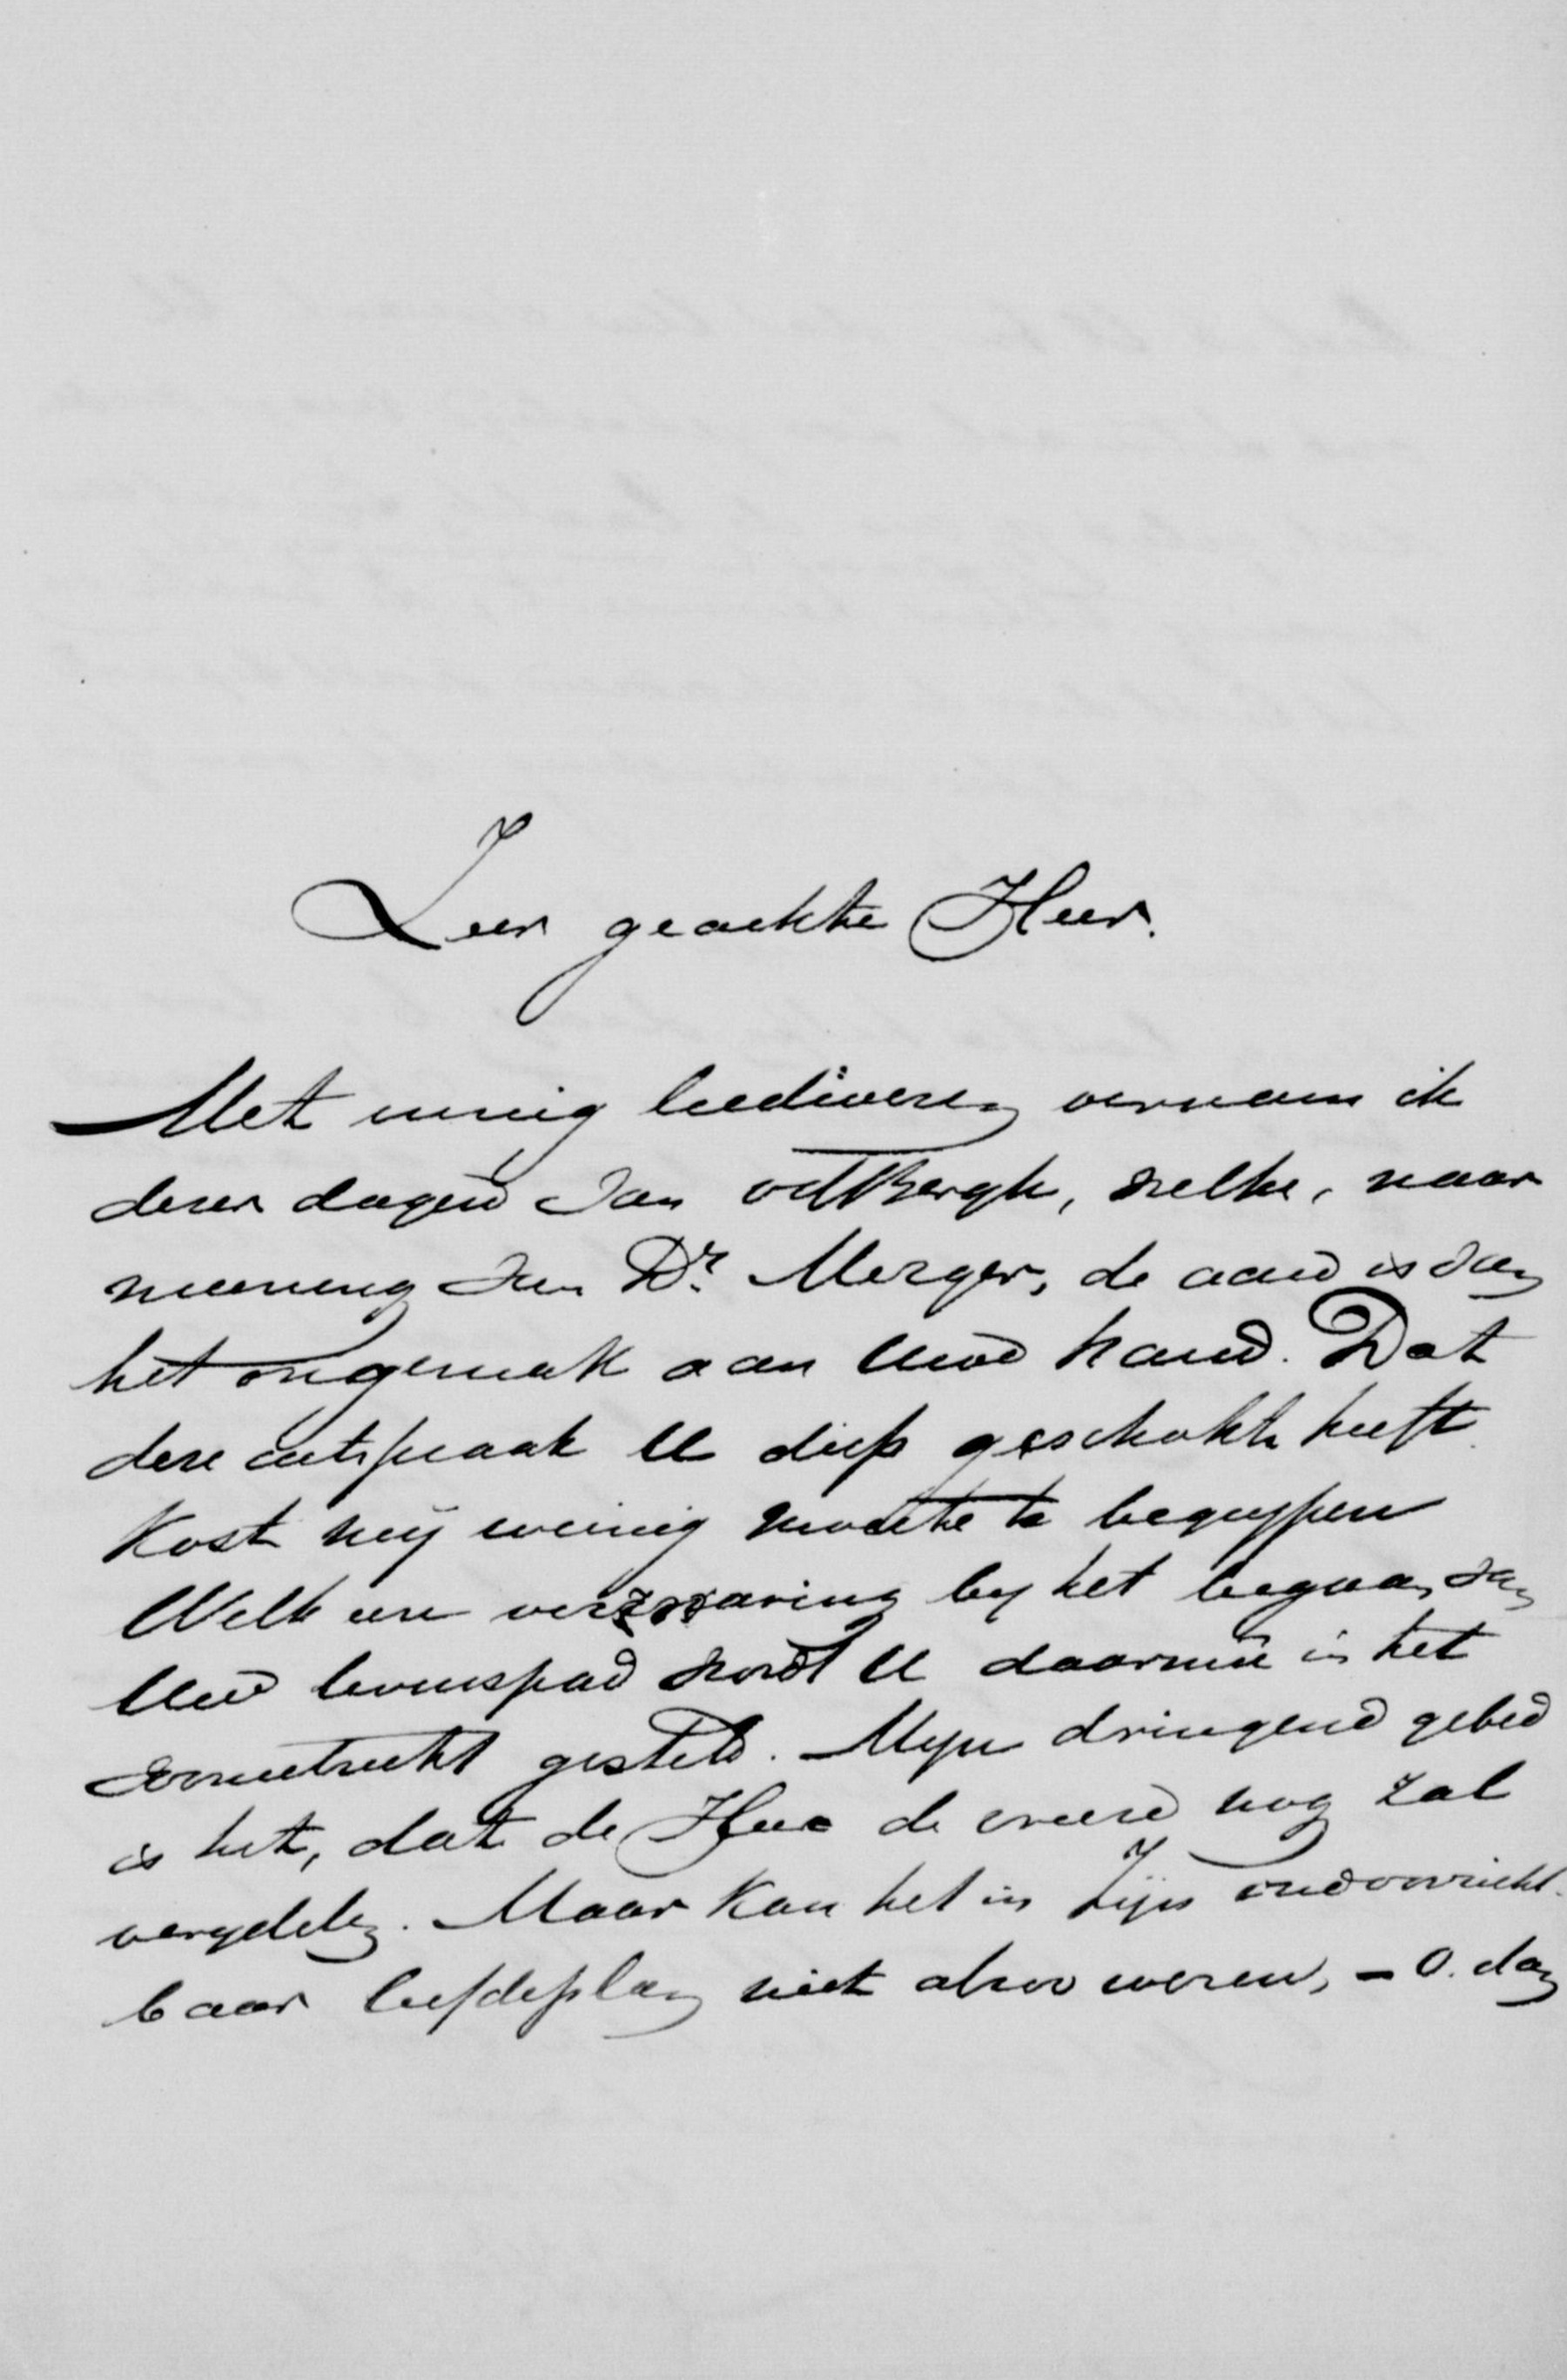 Zeer geachte Heer.
Met innig leedwezen vernam ik
dezer dagen van vdBergh, welke, naar
meening van Dr. Mezger, de aard is van
het ongemak aan Uwe hand. Dat
deze uitspraak U diep geschokt heeft
kost mij weinig moeite te begrijpen
Welk eene verzwaring bij het begaan van
Uw levenspad wordt U daarmeê in het
vooruitzicht gesteld. Mijn dringend gebed
is het, dat de Heer de vreeze nog zal
verijdelen. Maar kan het in Zijn ondoorzicht-
baar liefdeplan niet alzoo wezen, – o. dan